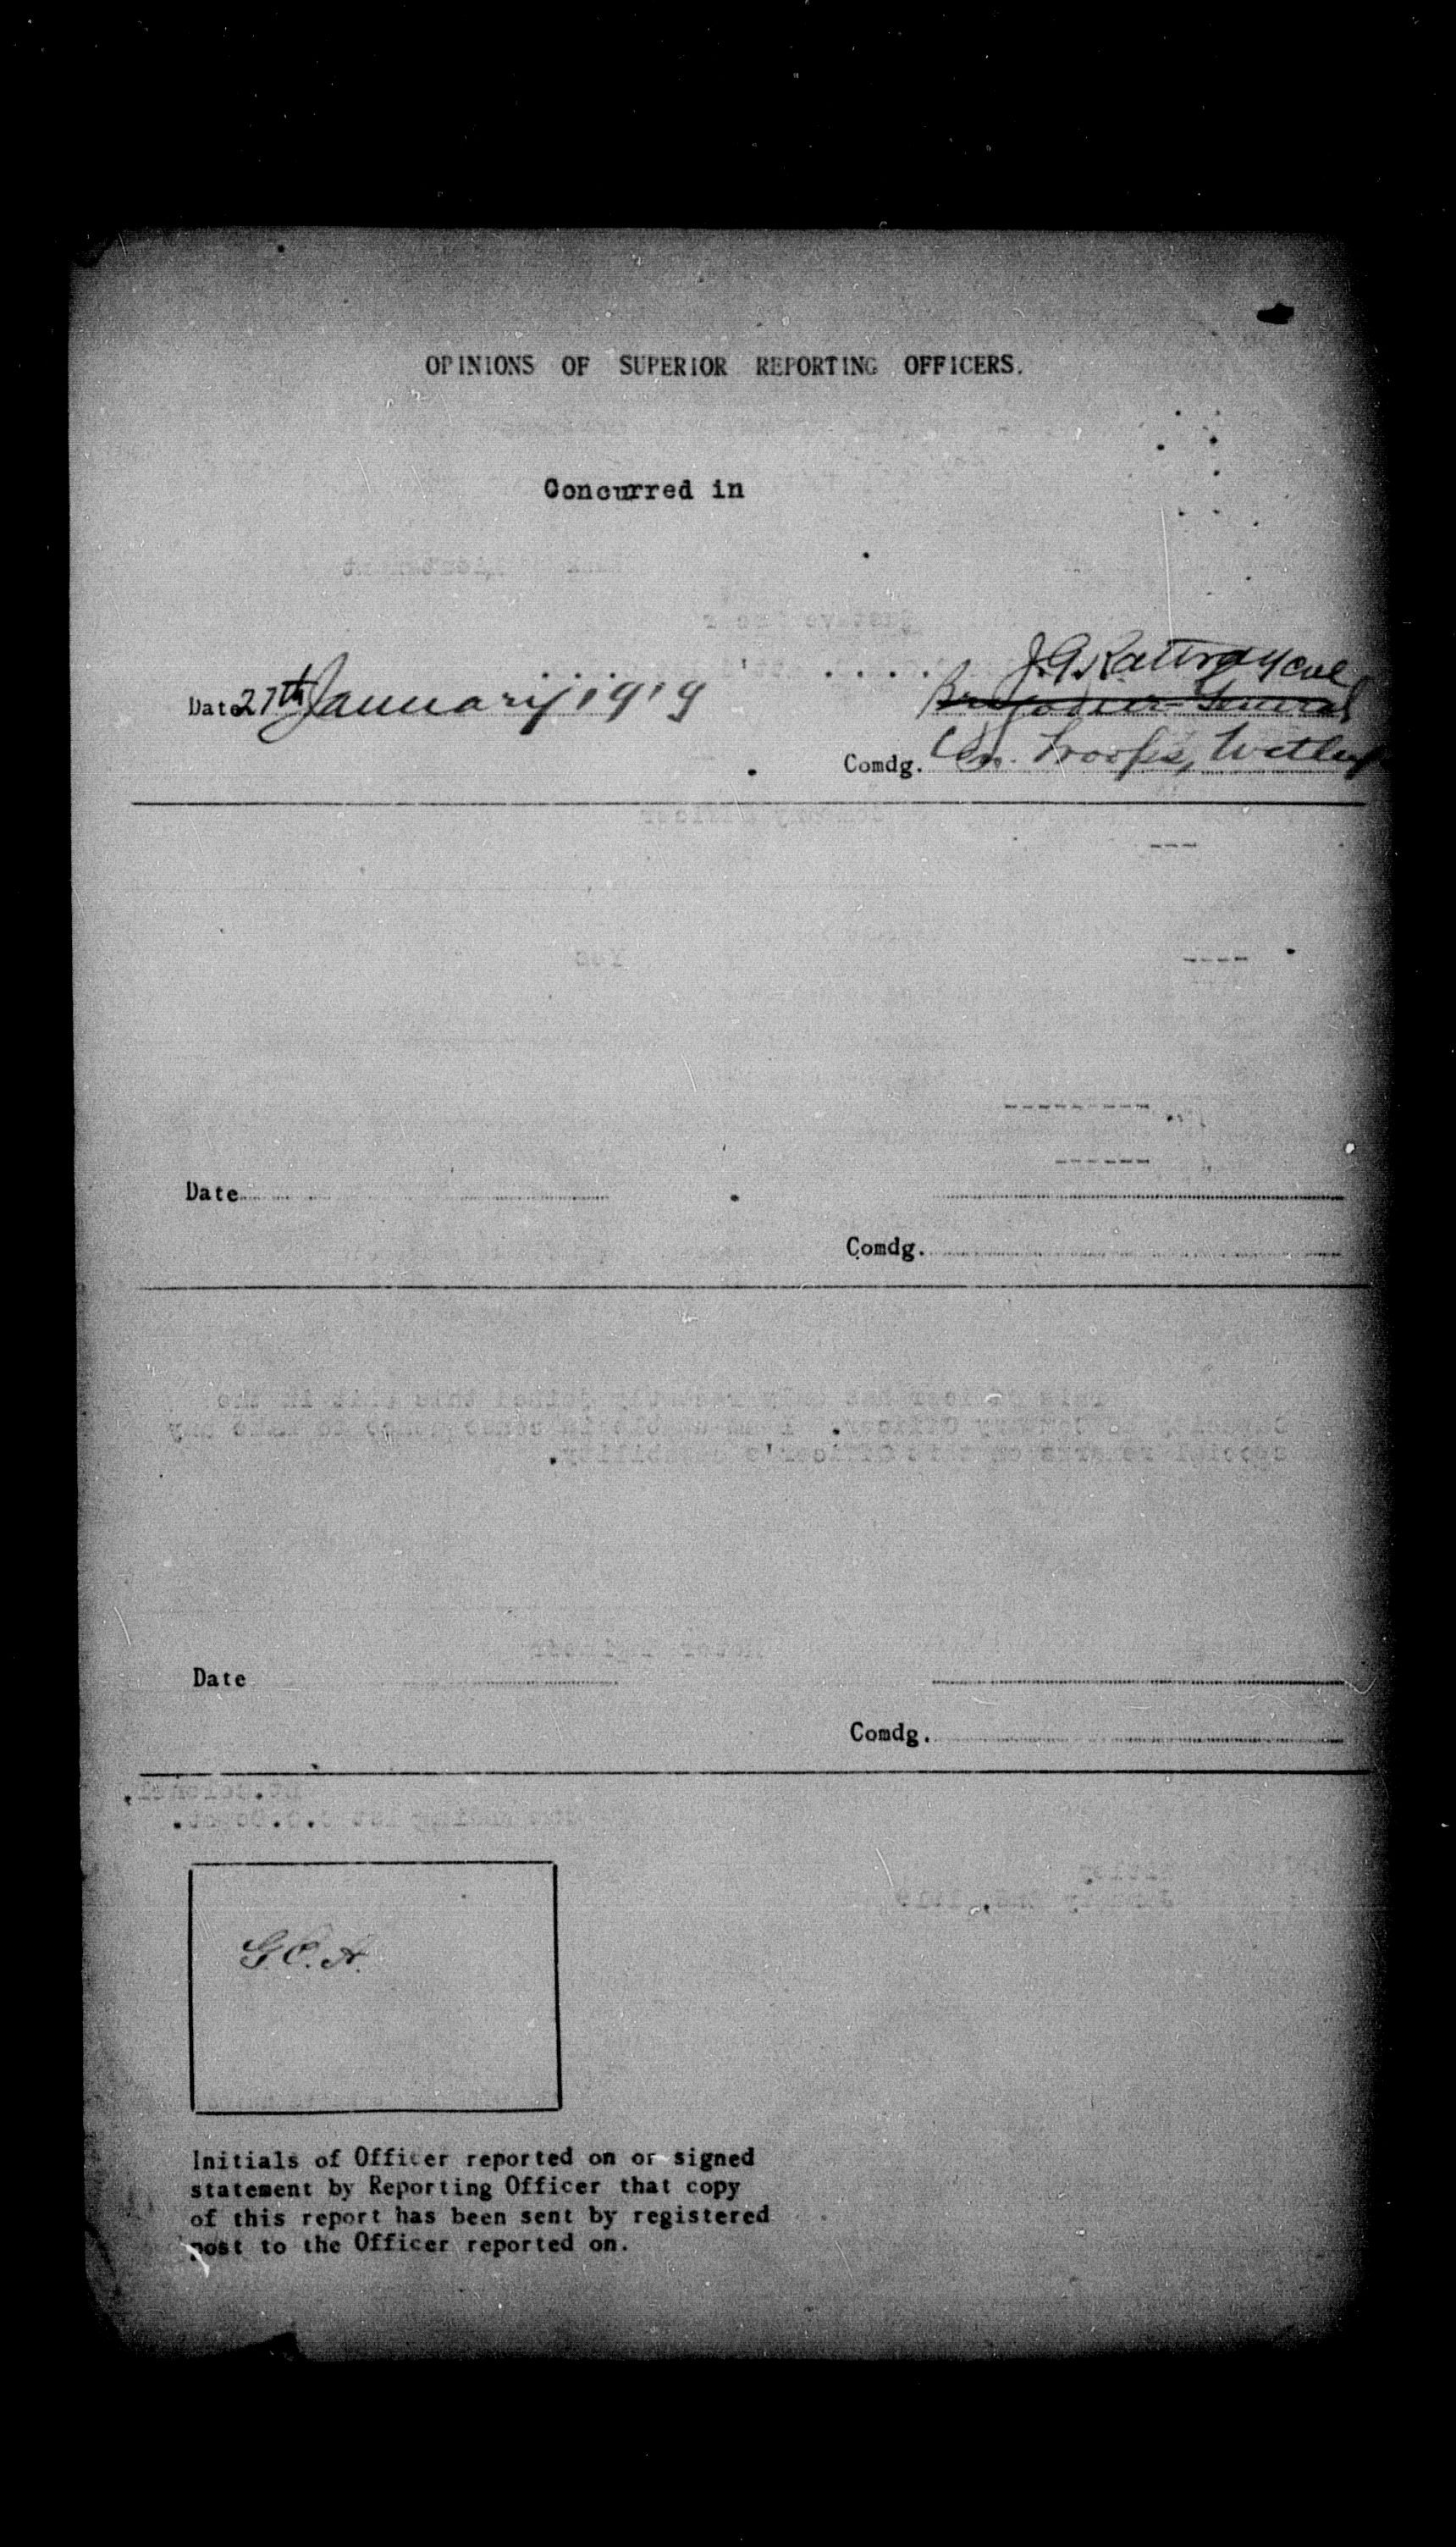 OPINIONS OF SUPERIOR REPORTING OFFICERS.
Concurred in
J.G. Rattray Col
Date 27th January 1919 Brigadier-General
Comdg. Cdn. Troops, Witley
Date
Comdg.
Date
Comdg.
G.C.A.
Initials of Officer reported on or signed
statement by Reporting Officer that copy
of this report has been sent by registered
post to the Officer reported on.